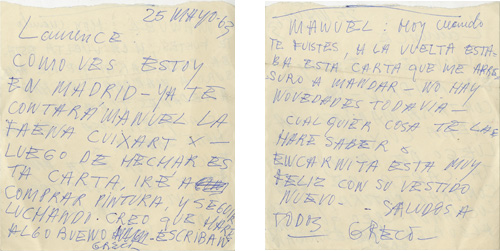 25 MAYO-63
Laurence
COMO VES ESTOY
EN MADRID-YA TE
CONTARÁ MANUEL LA
FAENA CUIXART X-
LUEGO DE HECHAR ES
TA CARTA, IRÉ A
COMPRAR PINTURA, Y SEGUIR
LUCHANDO. CREO QUE HARE
ALGO BUENO - ESCRIBAN
GRECO
MANUEL: HOY CUANDO
TE FUSTES, A LA VUELTA ESTA-
BA ESTA CARTA QUE ME APRE
SURO A MANDAR - NO HAY
NOVEDADES TODAVIA -
CUALQUIER COSA TE LA
HARE SABER
ENCARNITA ESTA MUY
FELIZ CON SU VESTIDO
NUEVO- - SALUDOS A
TODOS
GRECO-